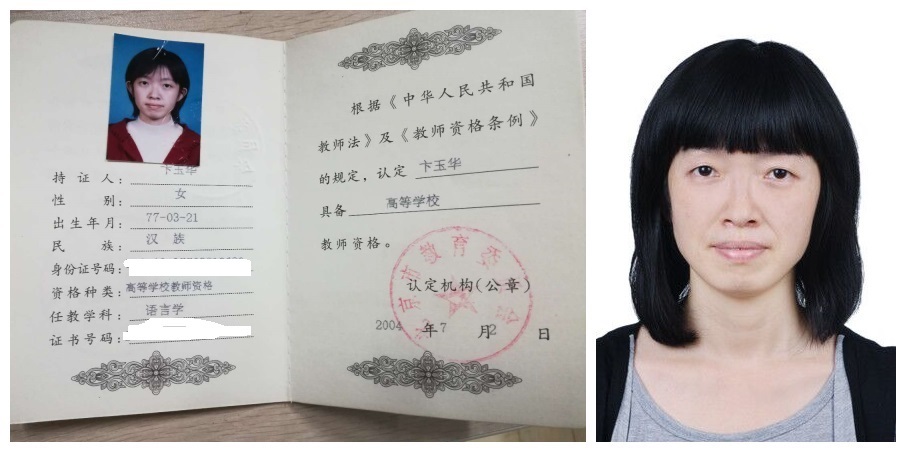 持证人： 卞玉华
性别： 女
出生年月： 77-03-21
民族： 汉 族
身份证号码：
资格种类： 高等学校教师资格
任教学科： 语言学
证书号码：
根据《中华人民共和国
教师法》及《教师资格条例》
的规定，认定 卞玉华
具备 高等学校
教师资格。
京市教育委
认定机构(公章)
2004 年 7 月 2 日